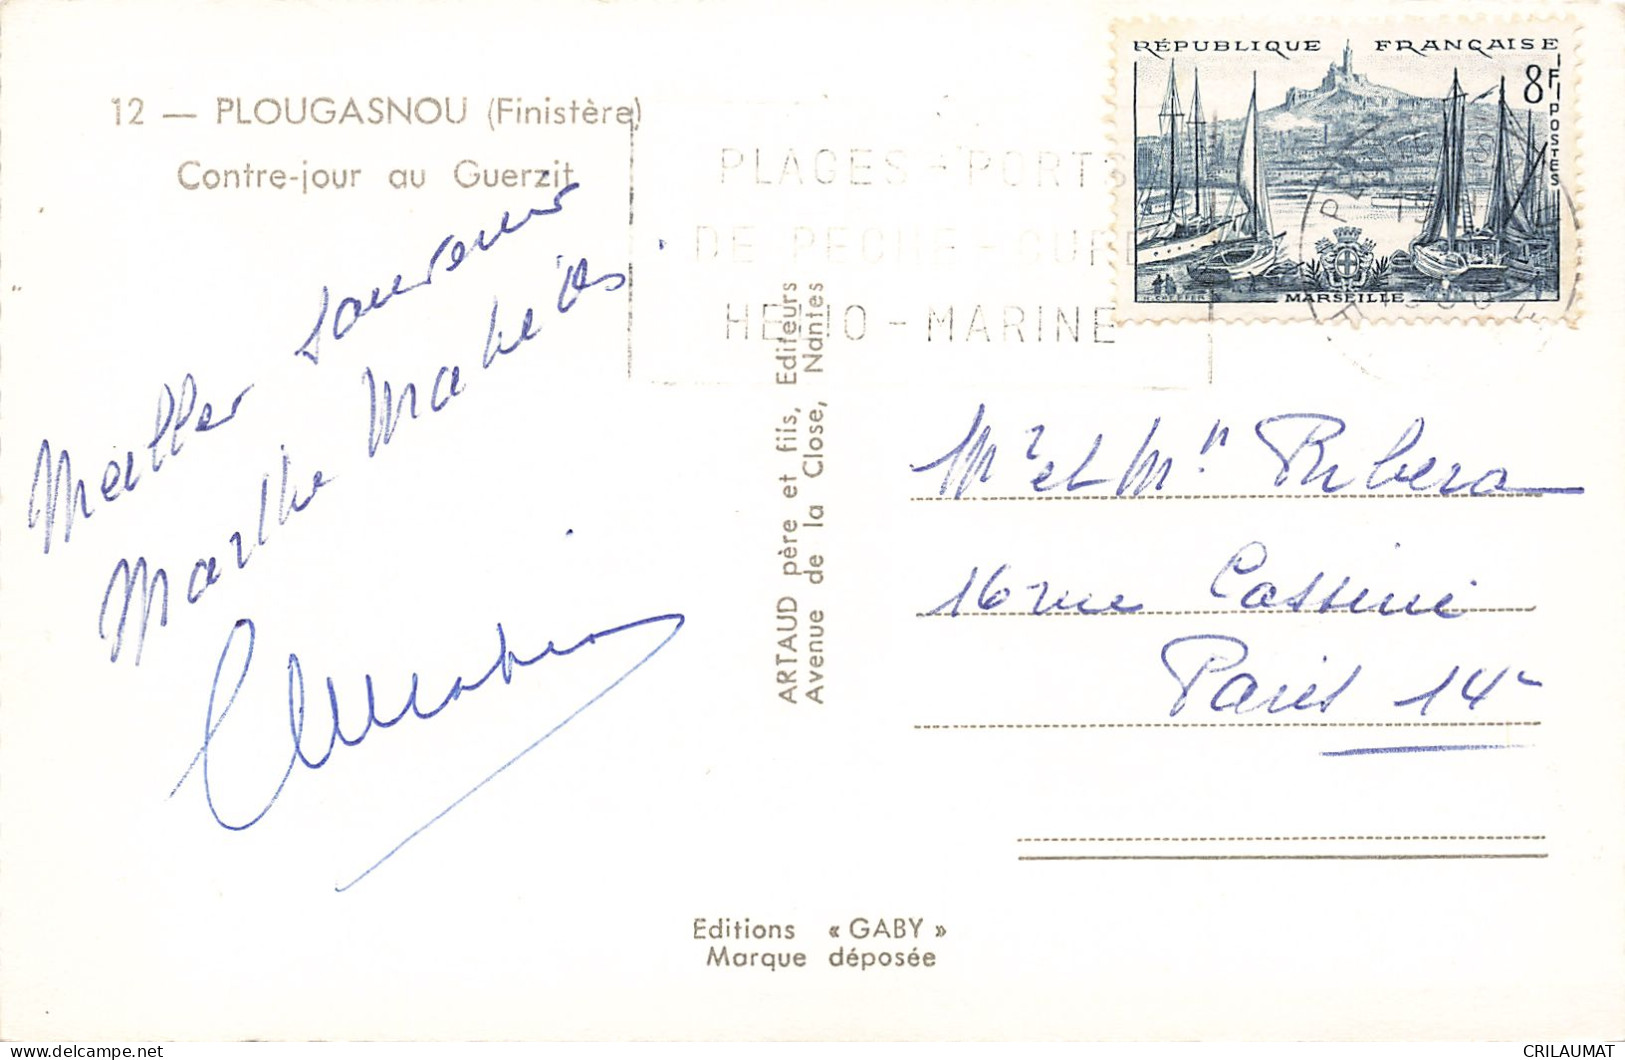 12 — PLOUGASNOU (Finistère)
Contre-jour au Guerzit
Meilleur souvenir
Marthe
ARTAUD père et fils, Editeurs
Avenue de la Close, Nantes
PLAGES - PORTS
DE PECHE - CURE
HELIO - MARINE
RÉPUBLIQUE FRANÇAISE
8F
POSTES
MARSEILLE
Mr et Mme Ribera
16 rue Cassini
Paris 14e
Editions « GABY »
Marque déposée
delcampe.net
CRILAUMAT